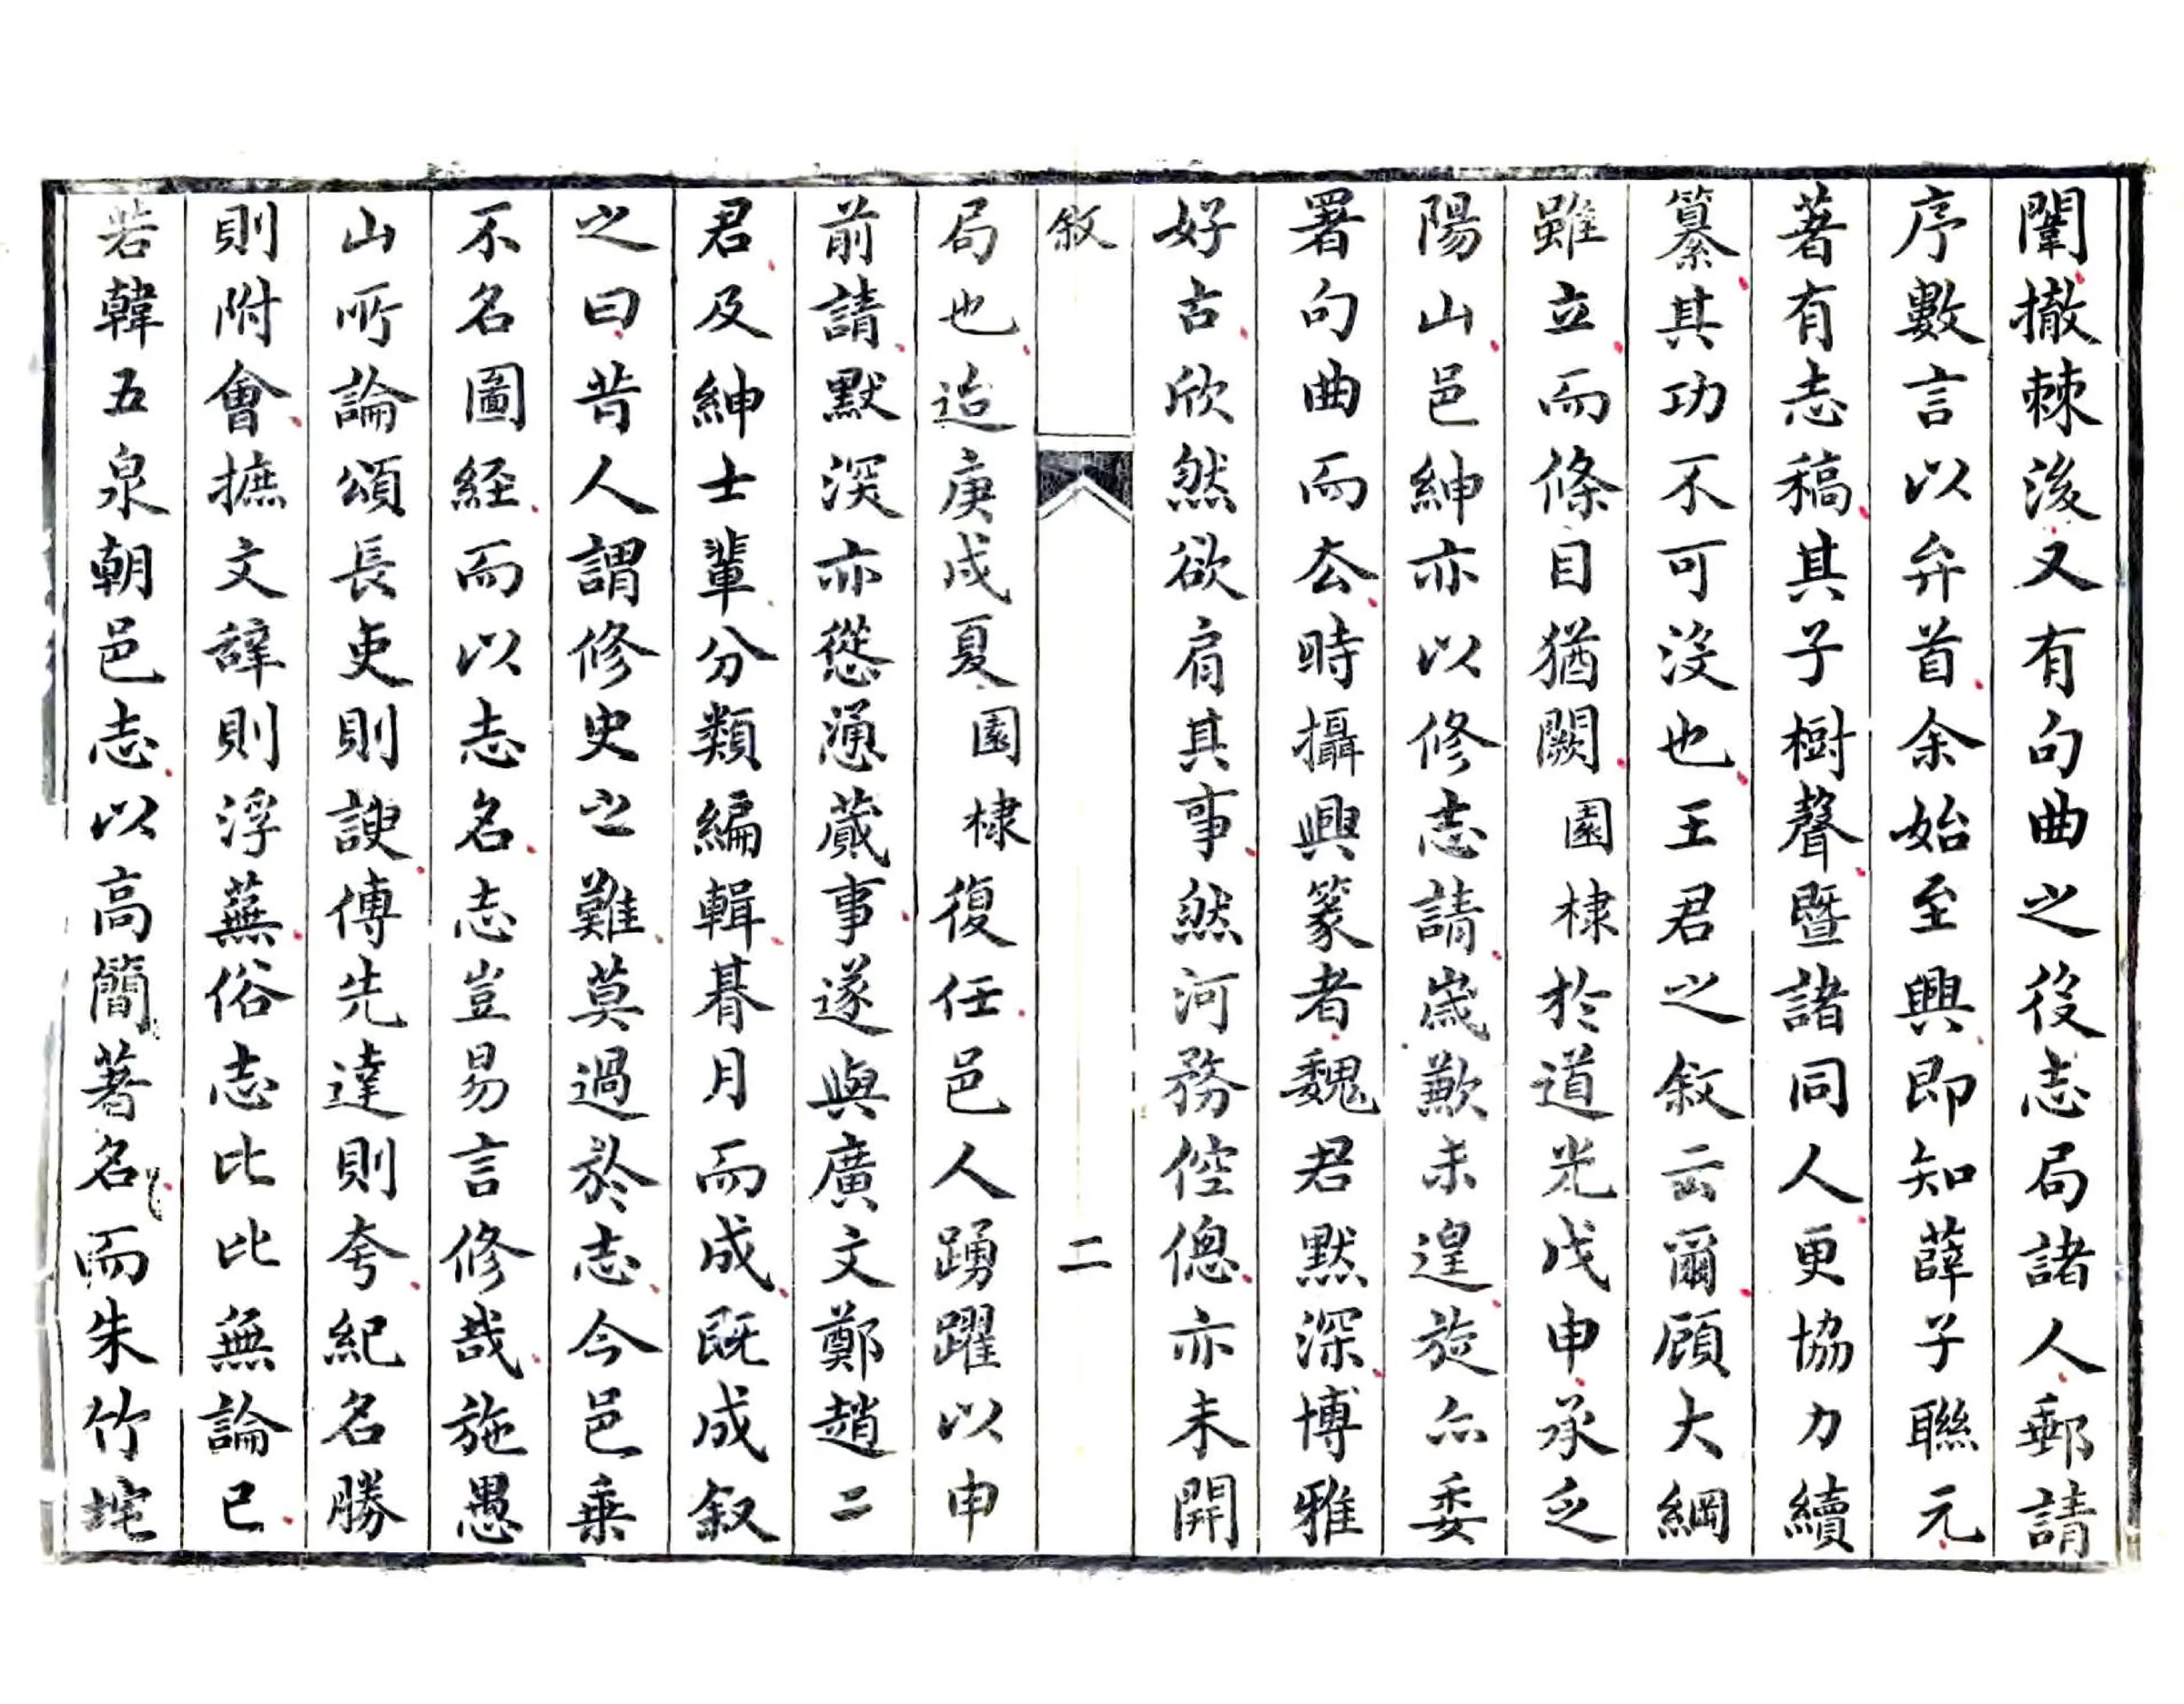 闈撤棘後又有句曲之役志局諸人郵請
序數言以弁首余始至興即知薛子聯元
著有志稿其子樹聲暨諸同人更協力續
纂其功不可沒也王君之敘云爾顧大綱
雖立而條目猶闕園棣於道光戊申承乏
陽山邑紳亦以修志請歲歉未遑旋亦委
署句曲而去時攝興篆者魏君默深博雅
好古欣然欲肩其事然河務倥傯亦未開
敘 二
局也迨庚戌夏園棣復任邑人踴躍以申
前請默深亦慫慂蕆事遂與廣文鄭趙二
君及紳士輩分類編輯朞月而成既成敘
之曰昔人謂修史之難莫過於志今邑乘
不名圖経而以志名志豈易言修哉施愚
山所論頌長吏則諛傳先達則夸紀名勝
則附會摭文辭則浮蕪俗志比比無論已
若韓五泉朝邑志以高簡著名而朱竹垞